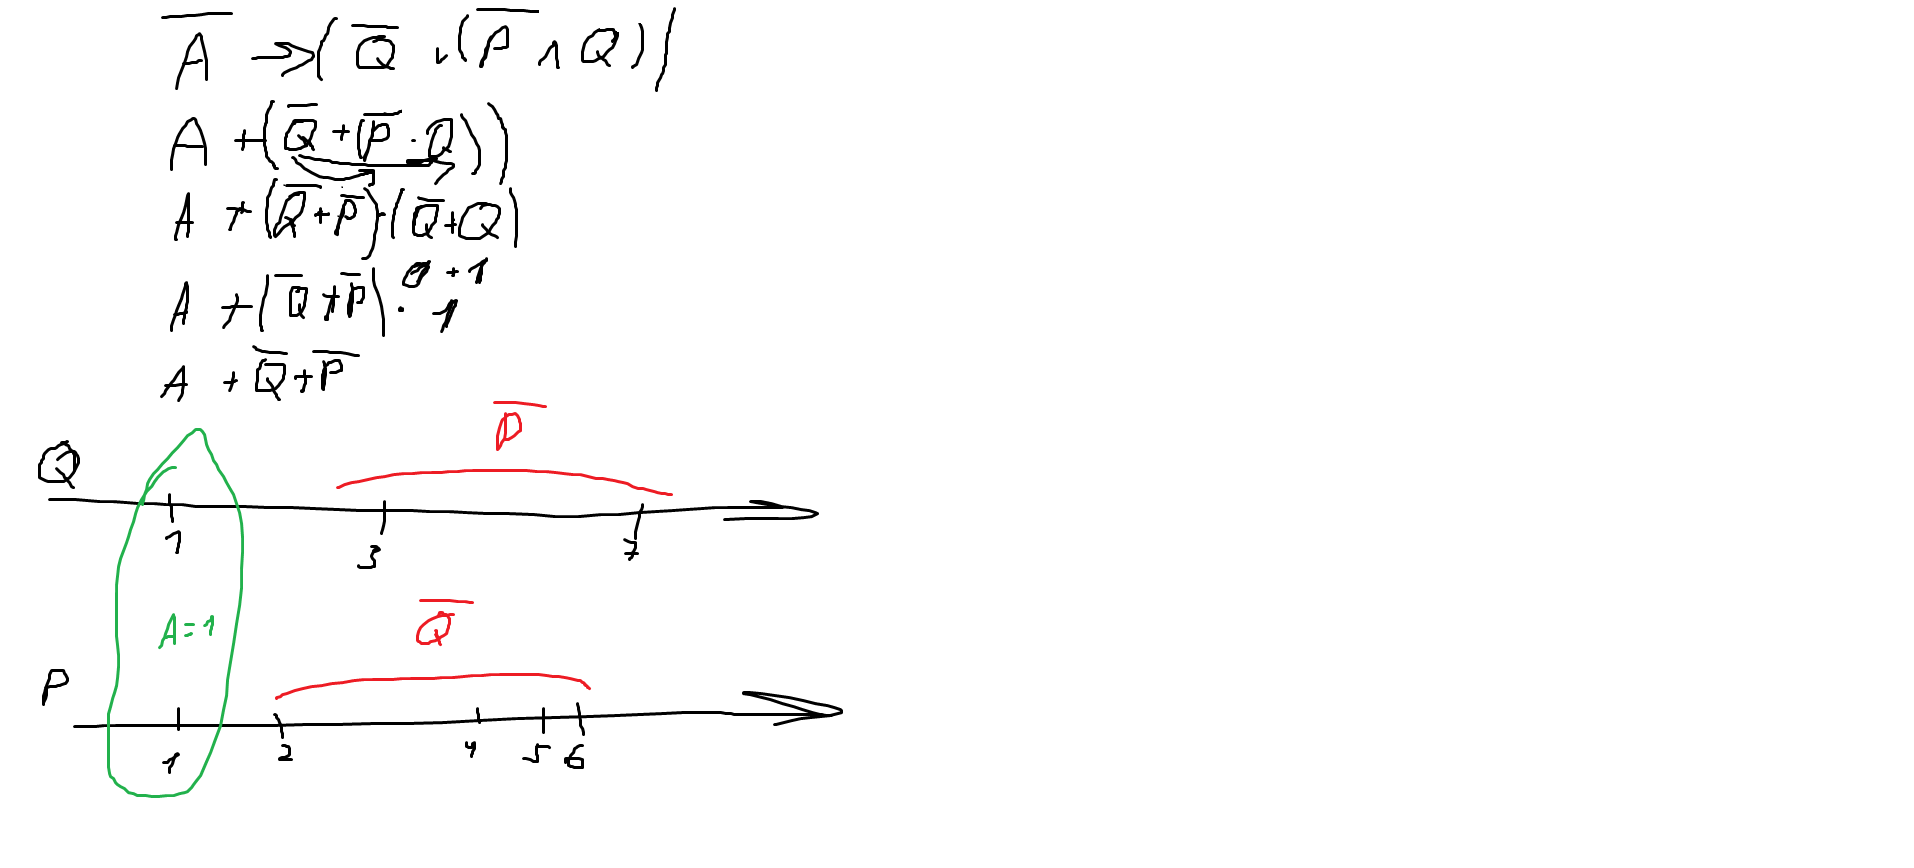 A̅ → (Q̅ ∨ (P̅ ∧ Q))
A + (Q̅ + (P̅ · Q))
A + (Q̅ + P̅) · (Q̅ + Q)
0 + 1
A + (Q̅ + P̅) · 1
A + Q̅ + P̅
P̅
Q
1 3 7
Q̅
A = 1
P
1 2 4 5 6